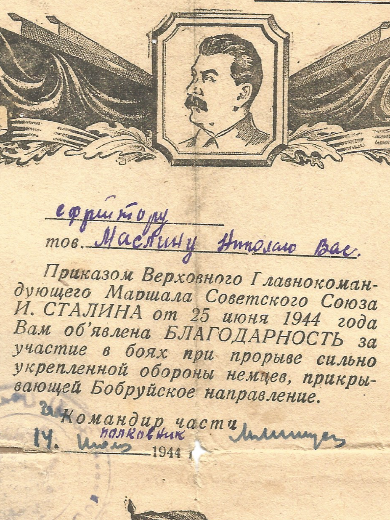 ефрейтору
тов. Маслину Николаю Вас.
Приказом Верховного Главнокоман-
дующего Маршала Советского Союза
И. СТАЛИНА от 25 июня 1944 года
Вам об'явлена БЛАГОДАРНОСТЬ за
участие в боях при прорыве сильно
укрепленной обороны немцев, прикры-
вающей Бобруйское направление.
Командир части
полковник
14. Июль 1944